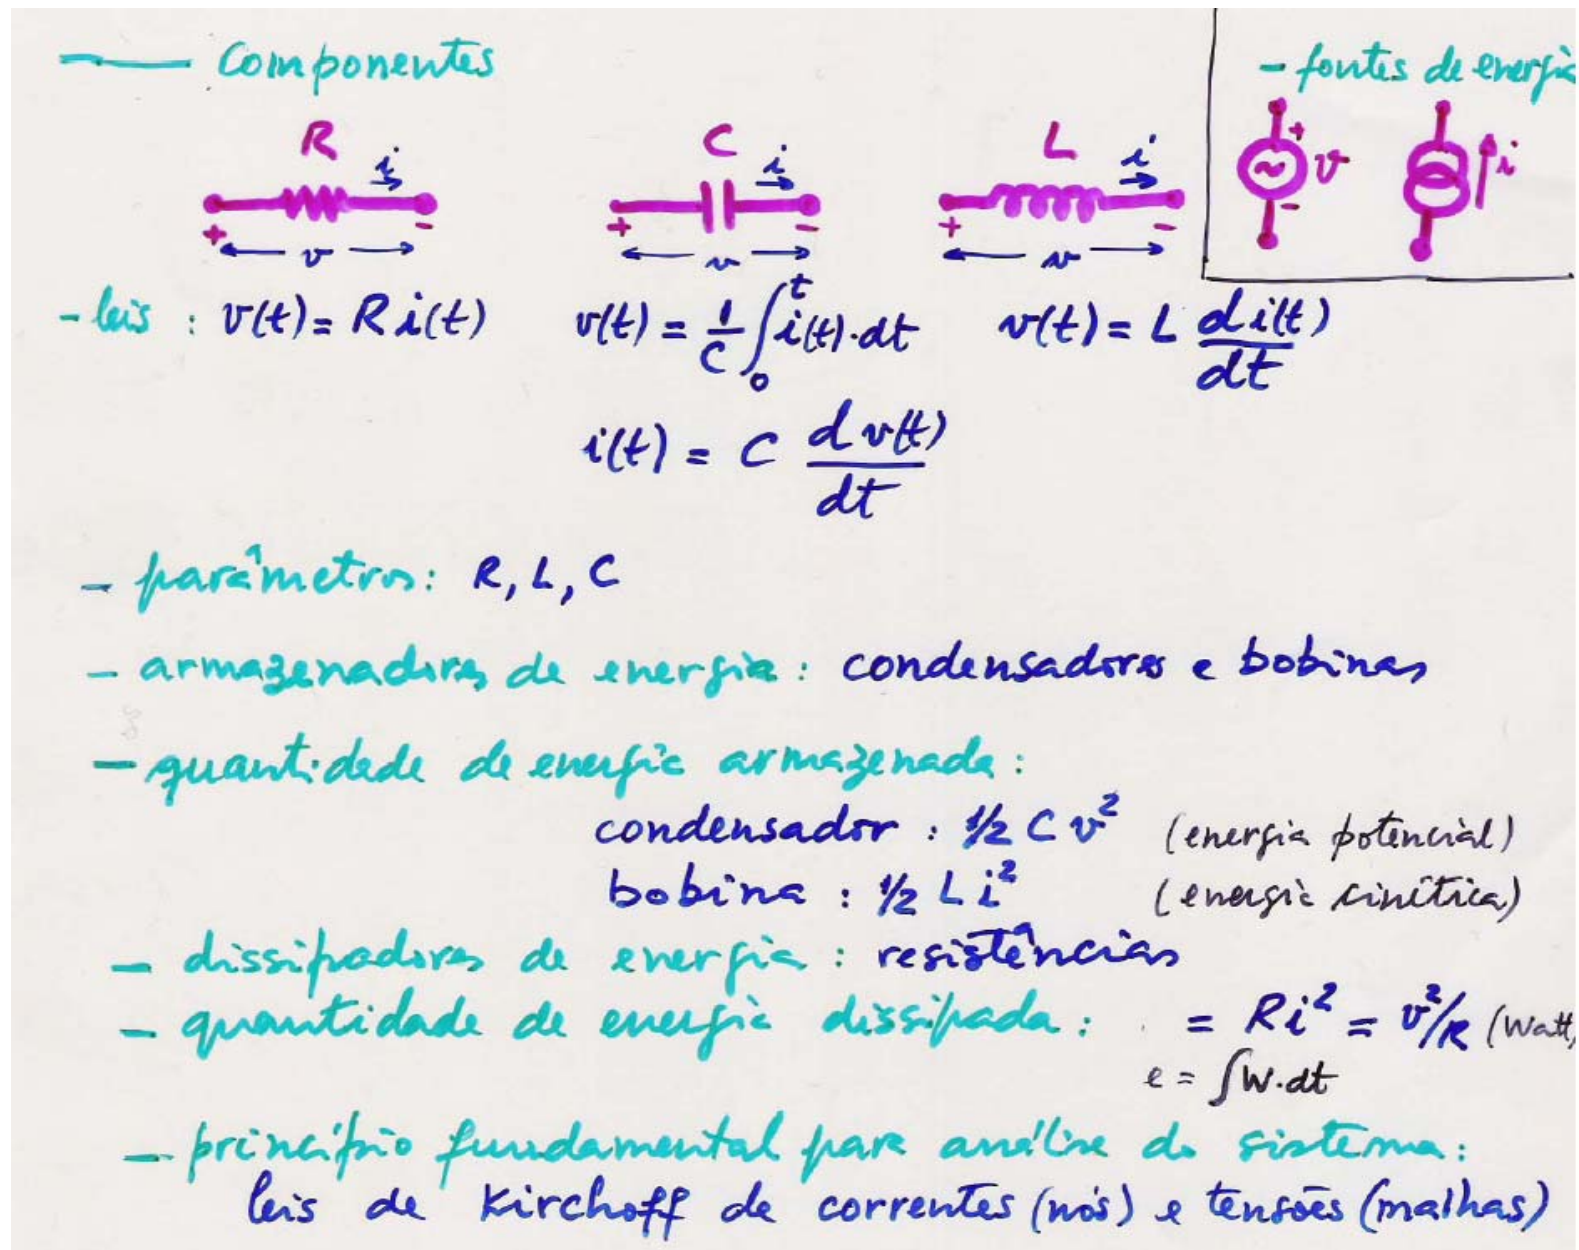 — Componentes
- fontes de energia
R i + - v
C i + - v
L i + - v
+ v -
i
- leis : v(t) = R i(t) v(t) = 1/C ∫₀ᵗ i(t)·dt v(t) = L di(t)/dt
i(t) = C dv(t)/dt
- parâmetros: R, L, C
- armazenadores de energia : condensadores e bobinas
- quantidade de energia armazenada :
condensador : 1/2 C v² (energia potencial)
bobina : 1/2 L i² (energia cinética)
- dissipadores de energia : resistências
- quantidade de energia dissipada : = Ri² = v²/R (Watt)
e = ∫W.dt
- princípio fundamental para análise do sistema :
leis de Kirchoff de correntes (nós) e tensões (malhas)